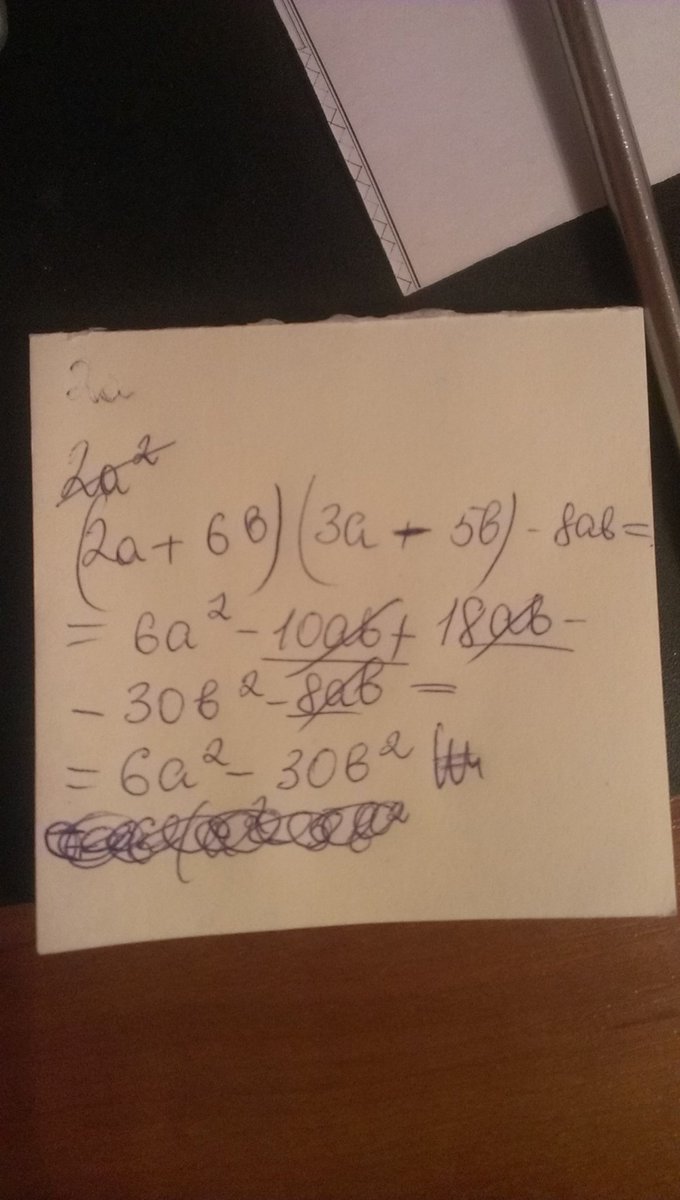 2a
2a²
(2a + 6в)(3a - 5в) - 8aв =
= 6a² - 10aв + 18aв -
- 30в² - 8aв =
= 6a² - 30в²